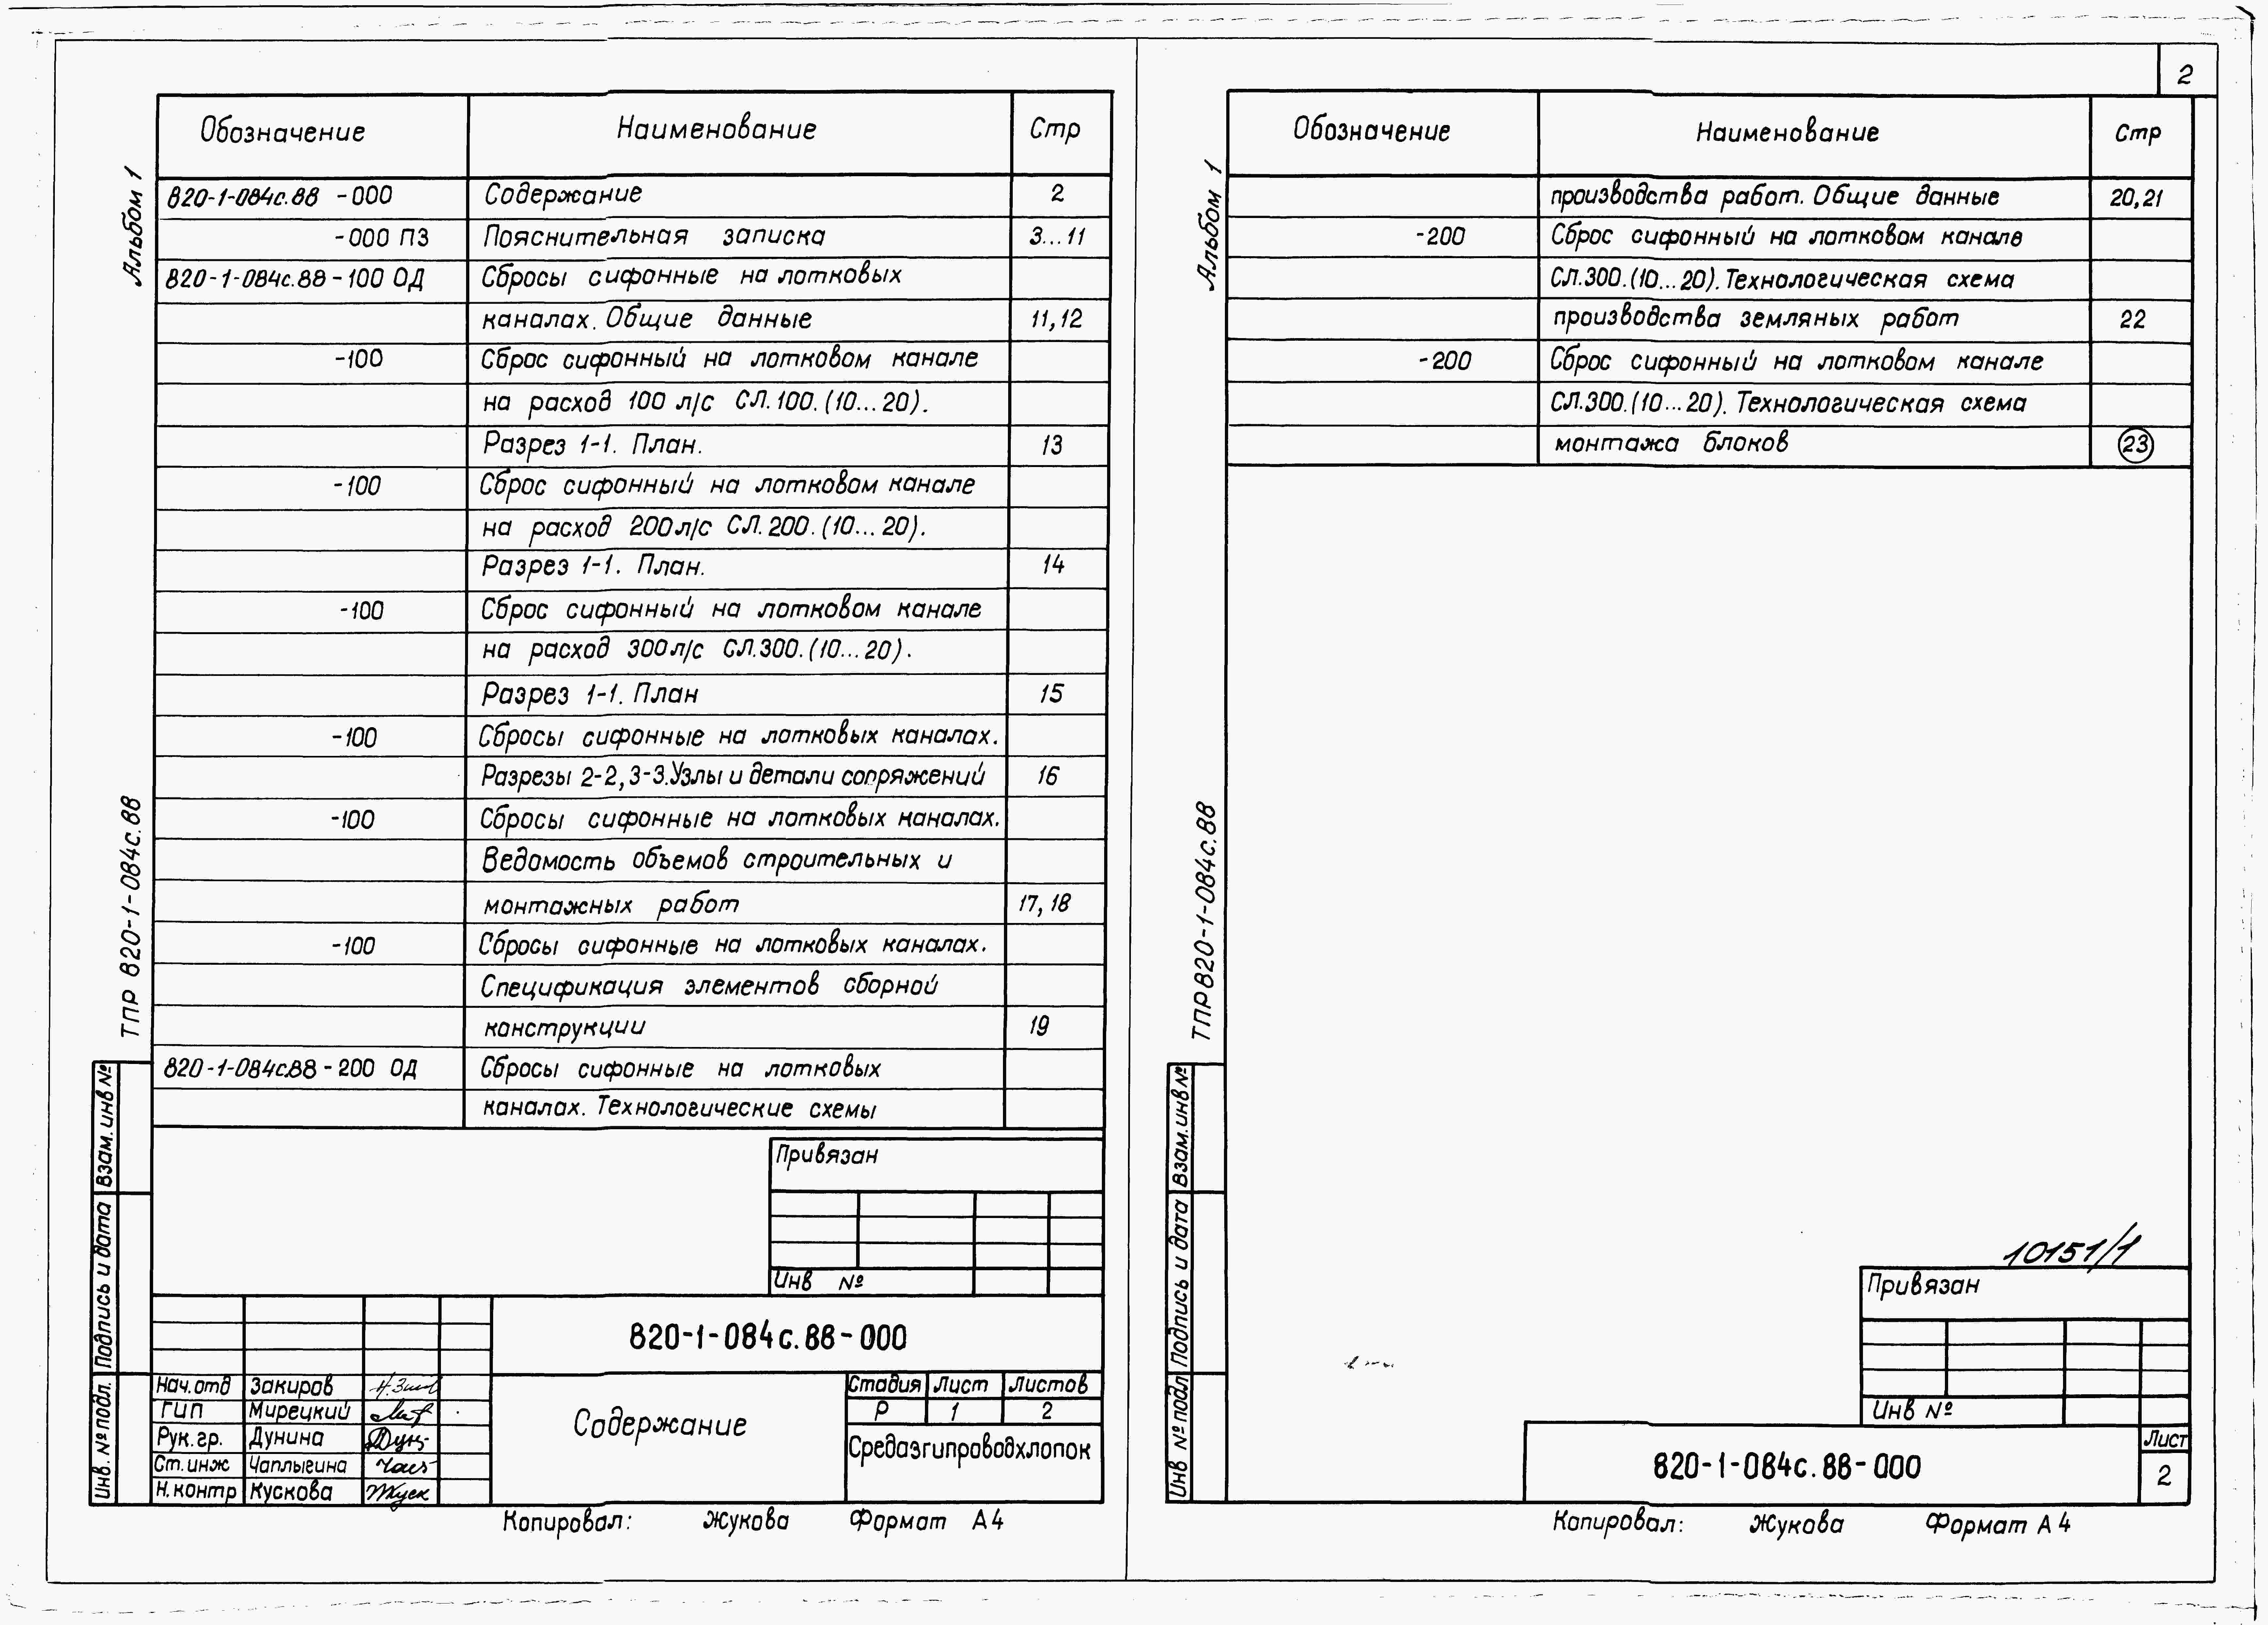 2
Альбом 1
ТПР 820-1-084с.88
Обозначение Наименование Стр
820-1-084с.88 -000 Содержание 2
-000 ПЗ Пояснительная записка 3...11
820-1-084с.88-100 ОД Сбросы сифонные на лотковых
каналах. Общие данные 11,12
-100 Сброс сифонный на лотковом канале
на расход 100 л/с СЛ.100.(10...20).
Разрез 1-1. План. 13
-100 Сброс сифонный на лотковом канале
на расход 200л/с СЛ.200.(10...20).
Разрез 1-1. План. 14
-100 Сброс сифонный на лотковом канале
на расход 300л/с СЛ.300.(10...20).
Разрез 1-1. План 15
-100 Сбросы сифонные на лотковых каналах.
Разрезы 2-2,3-3.Узлы и детали сопряжений 16
-100 Сбросы сифонные на лотковых каналах.
Ведомость объемов строительных и
монтажных работ 17,18
-100 Сбросы сифонные на лотковых каналах.
Спецификация элементов сборной
конструкции 19
820-1-084с.88-200 ОД Сбросы сифонные на лотковых
каналах. Технологические схемы
Привязан
Инв №
820-1-084с.88-000
Нач.отд Закиров
ГИП Мирецкий
Рук.гр. Дунина
Ст.инж Чаплыгина
Н.контр Кускова
Содержание
Стадия Лист Листов
Р 1 2
Средазгипроводхлопок
Взам.инв №
Подпись и дата
Инв. № подл.
Копировал: Жукова Формат А4
Альбом 1
ТПР820-1-084с.88
Обозначение Наименование Стр
производства работ. Общие данные 20,21
-200 Сброс сифонный на лотковом канале
СЛ.300.(10...20).Технологическая схема
производства земляных работ 22
-200 Сброс сифонный на лотковом канале
СЛ.300.(10...20). Технологическая схема
монтажа блоков 23
10151/1
Привязан
Инв №
820-1-084с.88-000
Лист
2
Взам.инв №
Подпись и дата
Инв № подл
Копировал: Жукова Формат А4